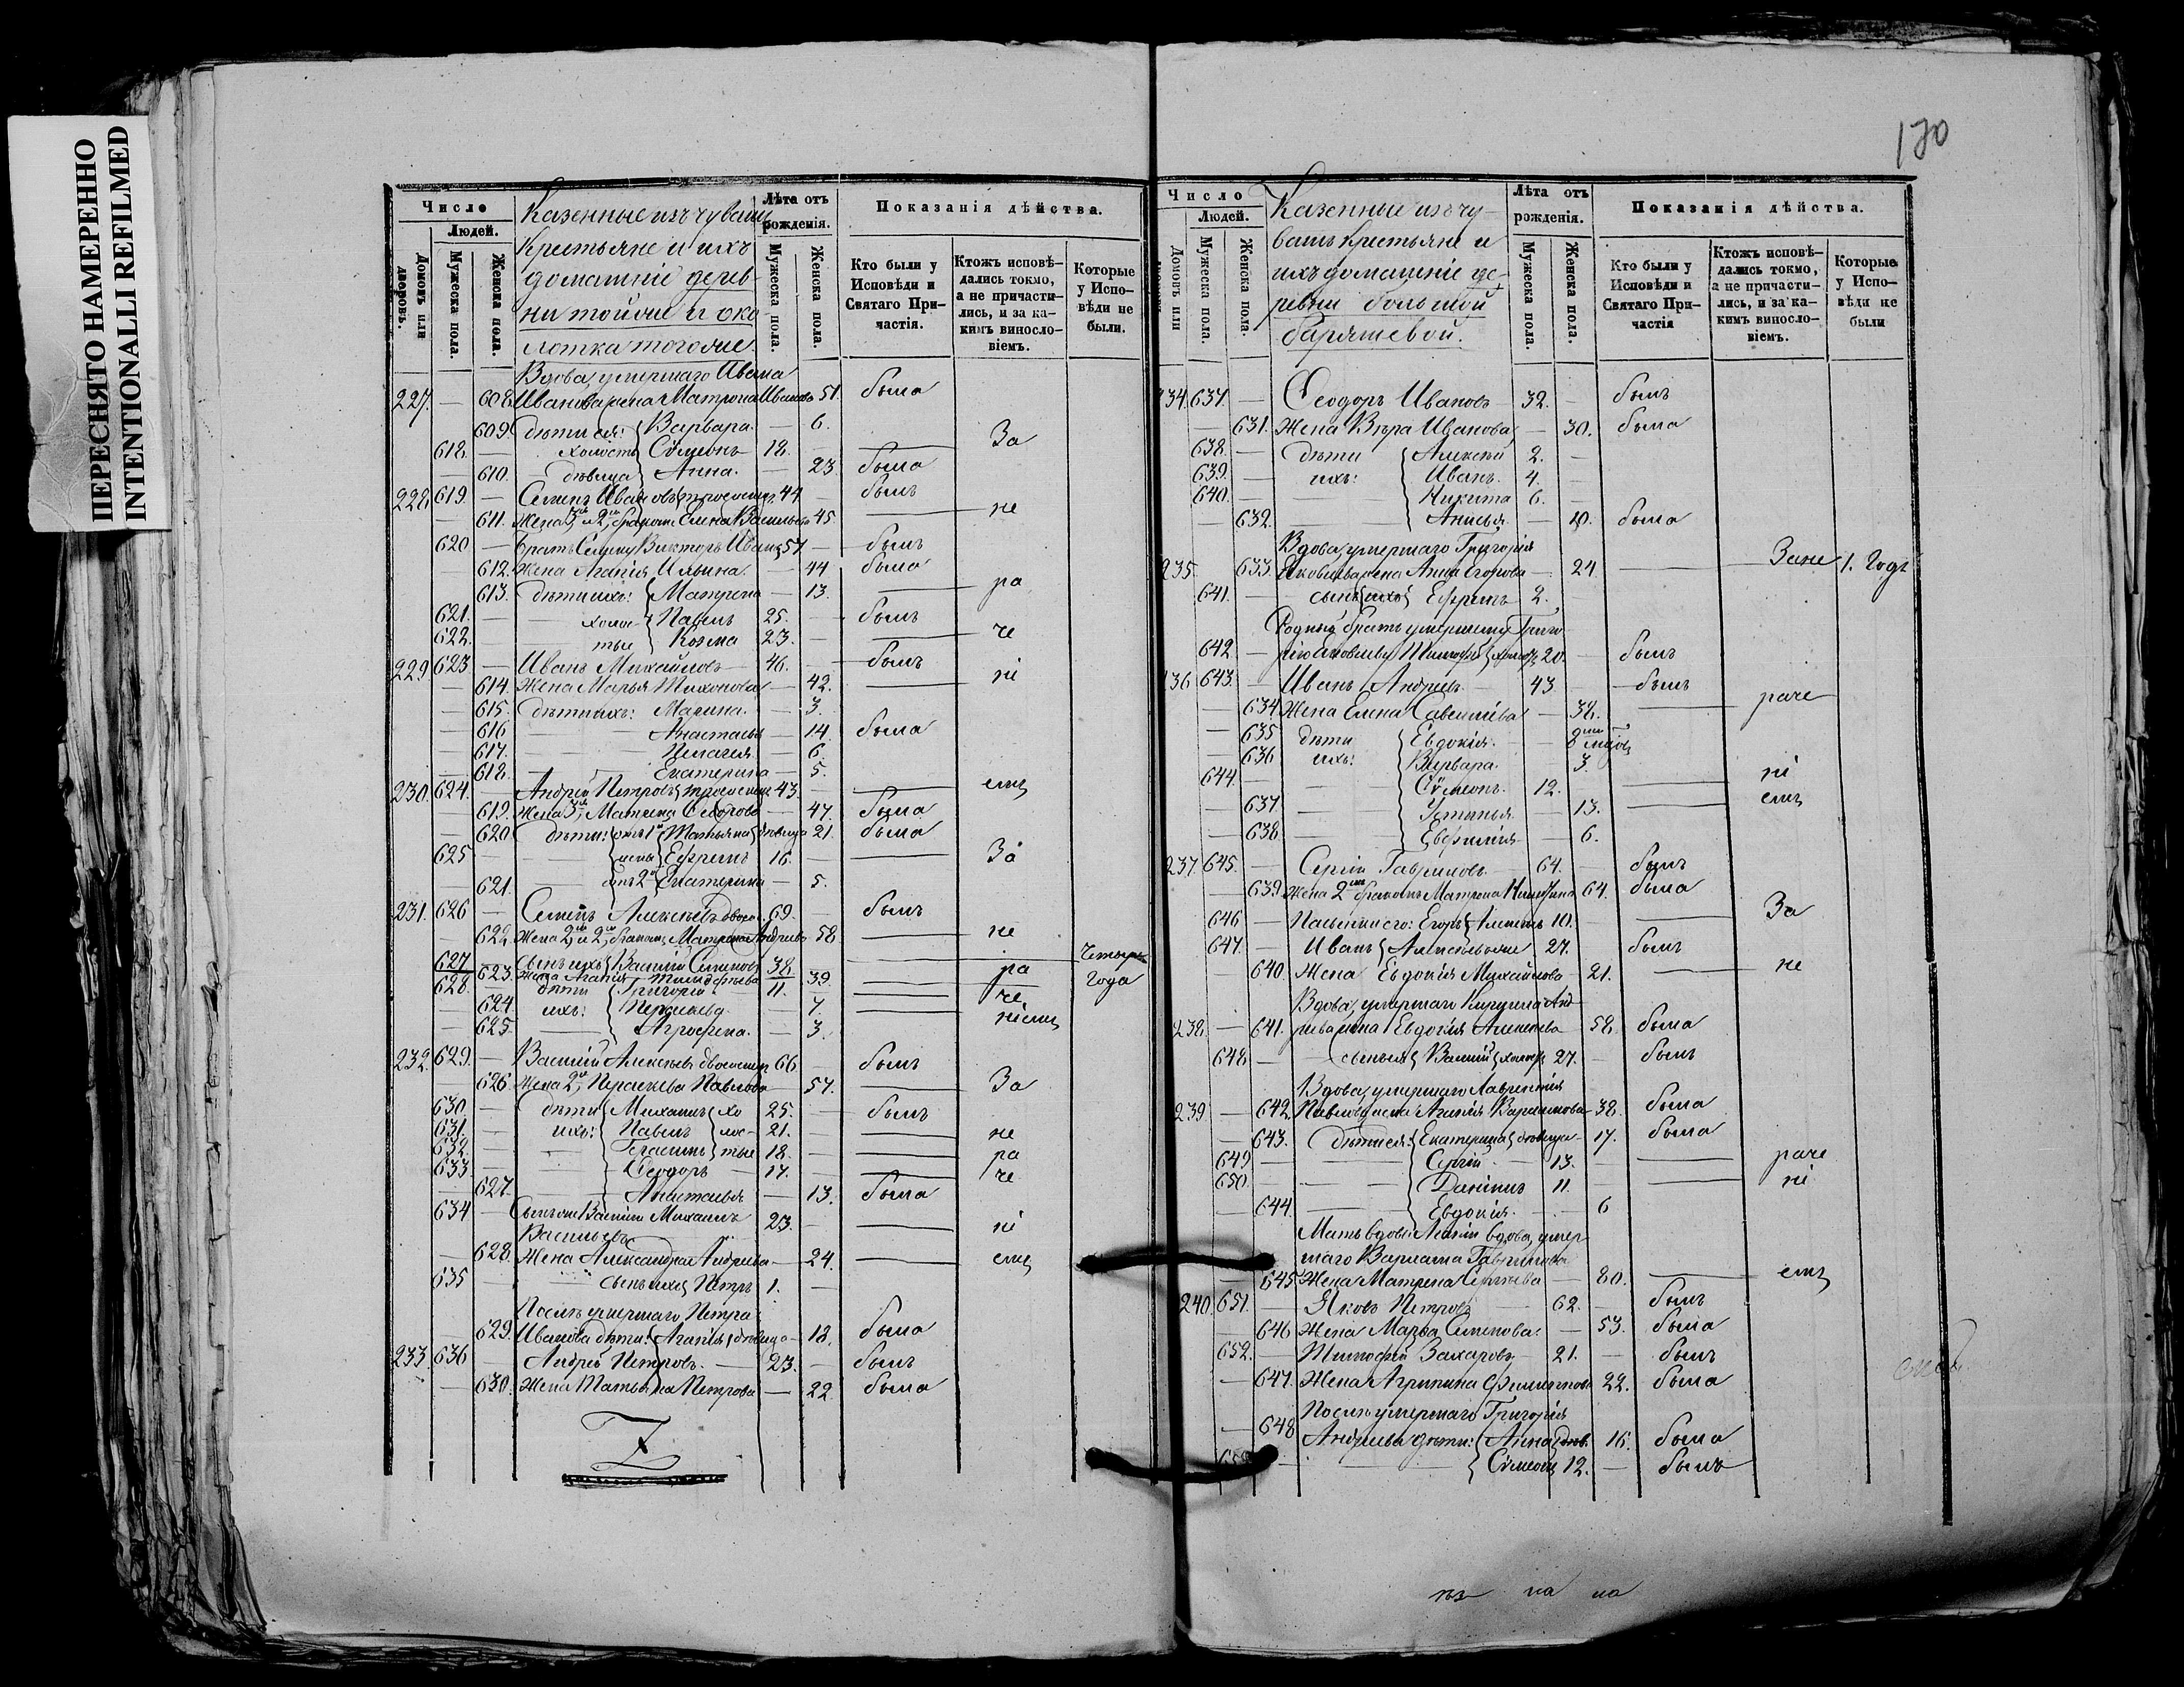 ПЕРЕСНЯТО НАМЕРЕННО
INTENTIONALLI REFILMED
170
Число
Людей.
Домовъ или дворовъ.
Мужеска пола.
Женска пола.
Казенные изъ чувашъ
крестьяне и ихъ
домашніе дерев-
ни тойже и око-
лотка тогоже
Лѣта отъ
рожденія.
Мужеска пола.
Женска пола.
Показанія дѣйства.
Кто были у
Исповѣди и
Святаго При-
частія.
Ктожъ исповѣ-
дались токмо,
а не причасти-
лись, и за ка-
кимъ виносло-
віемъ.
Которые
у Испо-
вѣди не
были.
Вдова, умершаго Ивана
227. — 608. Иванова жена Матрона Иванова 51. была
609. Дѣти ея: Варвара. — 6.
За
618. — холостъ Сѵмеонъ 18. —
— 610. — дѣвица Анна. — 23. была
228. 619. — Семенъ Ивановъ троеженъ 44 — былъ
не
— 611. Жена 3я и 2мъ бракомъ Елена Васильева 45.
620 — Братъ Семену Викторъ Иванов 57 — былъ
612. Жена Агапія Ильина. — 44 была
613. Дѣти ихъ: Матрена — 13. ра
621. — холос- Павелъ 25. — былъ
622. — тые Козма 23. — че
229 623 — Иванъ Михайловъ 46. — былъ
ні
— 614. Жена Марья Тихонова — 42.
— 615. Дѣти ихъ: Марина. — 3.
616 Анастасья — 14. была
617. Пелагея — 6.
— 618. Екатерина — 5.
230. 624. — Андрей Петровъ троеженъ 43. — емъ
— 619. Жена 3я, Матрена Ѳедорова — 47. была
— 620 Дѣти: отъ 1й Татьяна дѣвица 21. была
625 — жены Ефремъ 16. — За
— 621. отъ 2й Екатерина — 5.
231. 626 — Семенъ Алексѣевъ двоежен. 69. — былъ
— 622. Жена 2я и 2мъ бракомъ Матрена Андреева 58 не
627 — сынъ ихъ Василій Семеновъ 38. Четыре
623. Жена Агапія — 39. ра года
628. — дѣти Григорій — 11. че
— 624 ихъ: Пераскева — 7.
ніемъ
— 625 Агрофена. — 3.
232. 629. — Василій Алексѣевъ двоеженъ 66 былъ
626. Жена 2я, Пераскева Павлова — 57. За
630. — дѣти Михаилъ хо 25. — былъ
631. — ихъ: Павелъ лос- 21. не
632. — Герасимъ тые 18. — ра
633 — Ѳеодоръ — 17. че
— 627. Анастасья — 13. была
634 — Сынъ же Василія Михаилъ 23. — ні
Васильевъ
— 628. Жена Александра Андреева — 24. емъ
635 сынъ ихъ Петръ 1. —
Послѣ умершаго Петра
— 629. Иванова дѣти: Агапія дѣвица — 18. была
233. 636 — Андрей Петровъ. — 23. — былъ
— 630. Жена Татьяна Петрова — 22. была
Число
Людей.
Домовъ или
Мужеска пола.
Женска пола.
Казенные изъ чу-
вашъ крестьяне и
ихъ домашніе де-
ревни большой
барышевой.
Лѣта отъ
рожденія.
Мужеска пола.
Женска пола.
Показанія дѣйства.
Кто были у
Исповѣди и
Святаго При-
частія
Ктожъ исповѣ-
дались токмо,
а не причасти-
лись, и за ка-
кимъ виносло-
віемъ.
Которые
у Испо-
вѣди не
были
234. 637. — Ѳеодоръ Ивановъ — 32. — былъ
— 631. Жена Вѣра Иванова — 30. была
638. — Дѣти Алексѣй 2. —
639. — ихъ: Иванъ. 4.
640. — Никита 6. —
632. Анисья. — 10. была
Вдова, умершаго Григорія
235 633. Яковлева жена Анна Егорова — 24 Зане 1. Годъ
641. — сынъ ихъ Ефремъ 2.
Родный братъ умершему Григо-
642. — рію Яковлеву Тимофей холос. 20. — былъ
236 643. — Иванъ Андреевъ. 43 — былъ
— 634. Жена Елена Савельева — 38. раче
— 635 дѣти Евдокія. —
636 ихъ: Варвара. — 3.
644. — Сѵмеонъ. 12. ні
— 637. Устинья. — 13. емъ
— 638. Евфимія. — 6.
237. 645. — Сергій Гавриловъ. 64. — былъ
— 639 Жена 2мъ бракомъ Матрона 64. была
646 — Пасынки его: Егоръ 10. За
647. — Иванъ Алексѣевы 27. былъ
640. Жена Евдокія Михайлова — 21. не
Вдова, умершаго Анд-
238. — 641. реева жена Евдокія Алексѣева 58. была
648 — сынъ ея Василій холос. 27. — былъ
Вдова, умершаго Лаврентія
239. — 642. Павлова жена Агапія Варламова 38. была
— 643. Дѣти ея: Екатерина дѣвица — 17. была
649 — Сергій — 13. — раче
650. — Даніилъ 11. — ні
— 644. Евдокія. — 6
Мать вдовы Агапіи вдова, умер-
шаго Варлама Гаврилова
645. Жена Матрена Сергѣева — 80. емъ
240. 651. — Яковъ Петровъ 62. — былъ
— 646 Жена Марѳа Семенова. — 53. была
652. — Тимофей Захаровъ 21. — былъ
— 647. Жена Агрипина Филиппова 22. была
Послѣ умершаго Григорія
— 648 Андреева дѣти: Анна дѣв. 16. была
653 — Сѵмеонъ 12. — былъ